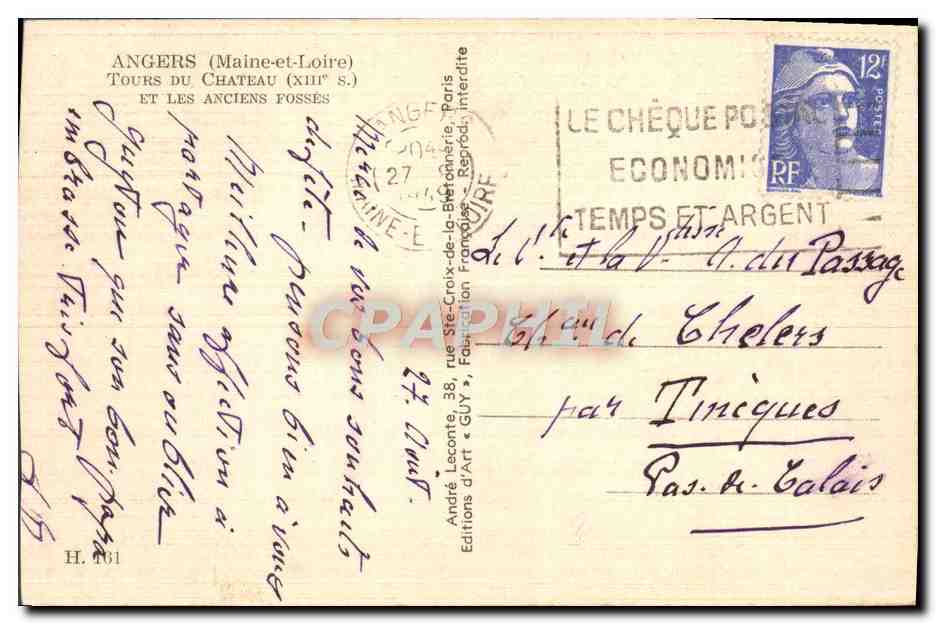 ANGERS (Maine-et-Loire)
TOURS DU CHATEAU (XIIIe S.)
ET LES ANCIENS FOSSÉS
27. Août.
Merci de vos bons souhaits
de fête - pensons bien à vous
Meilleure affection à
partager sans oublier
que son bon papa
embrasse très fort
H. 161
André Leconte, 38, rue Ste-Croix-de-la-Bretonnerie, Paris
Editions d'Art « GUY », Fabrication Française - Reprod. interdite
ANGERS
27
MAINE-E LOIRE
LE CHÈQUE POSTAL
ECONOMIS
TEMPS ET ARGENT
12F
POSTES
RF
Le Cte et la Vtesse A. du Passage
Chau de Chelers
par Tincques
Pas-de-Calais
CPAPHIL